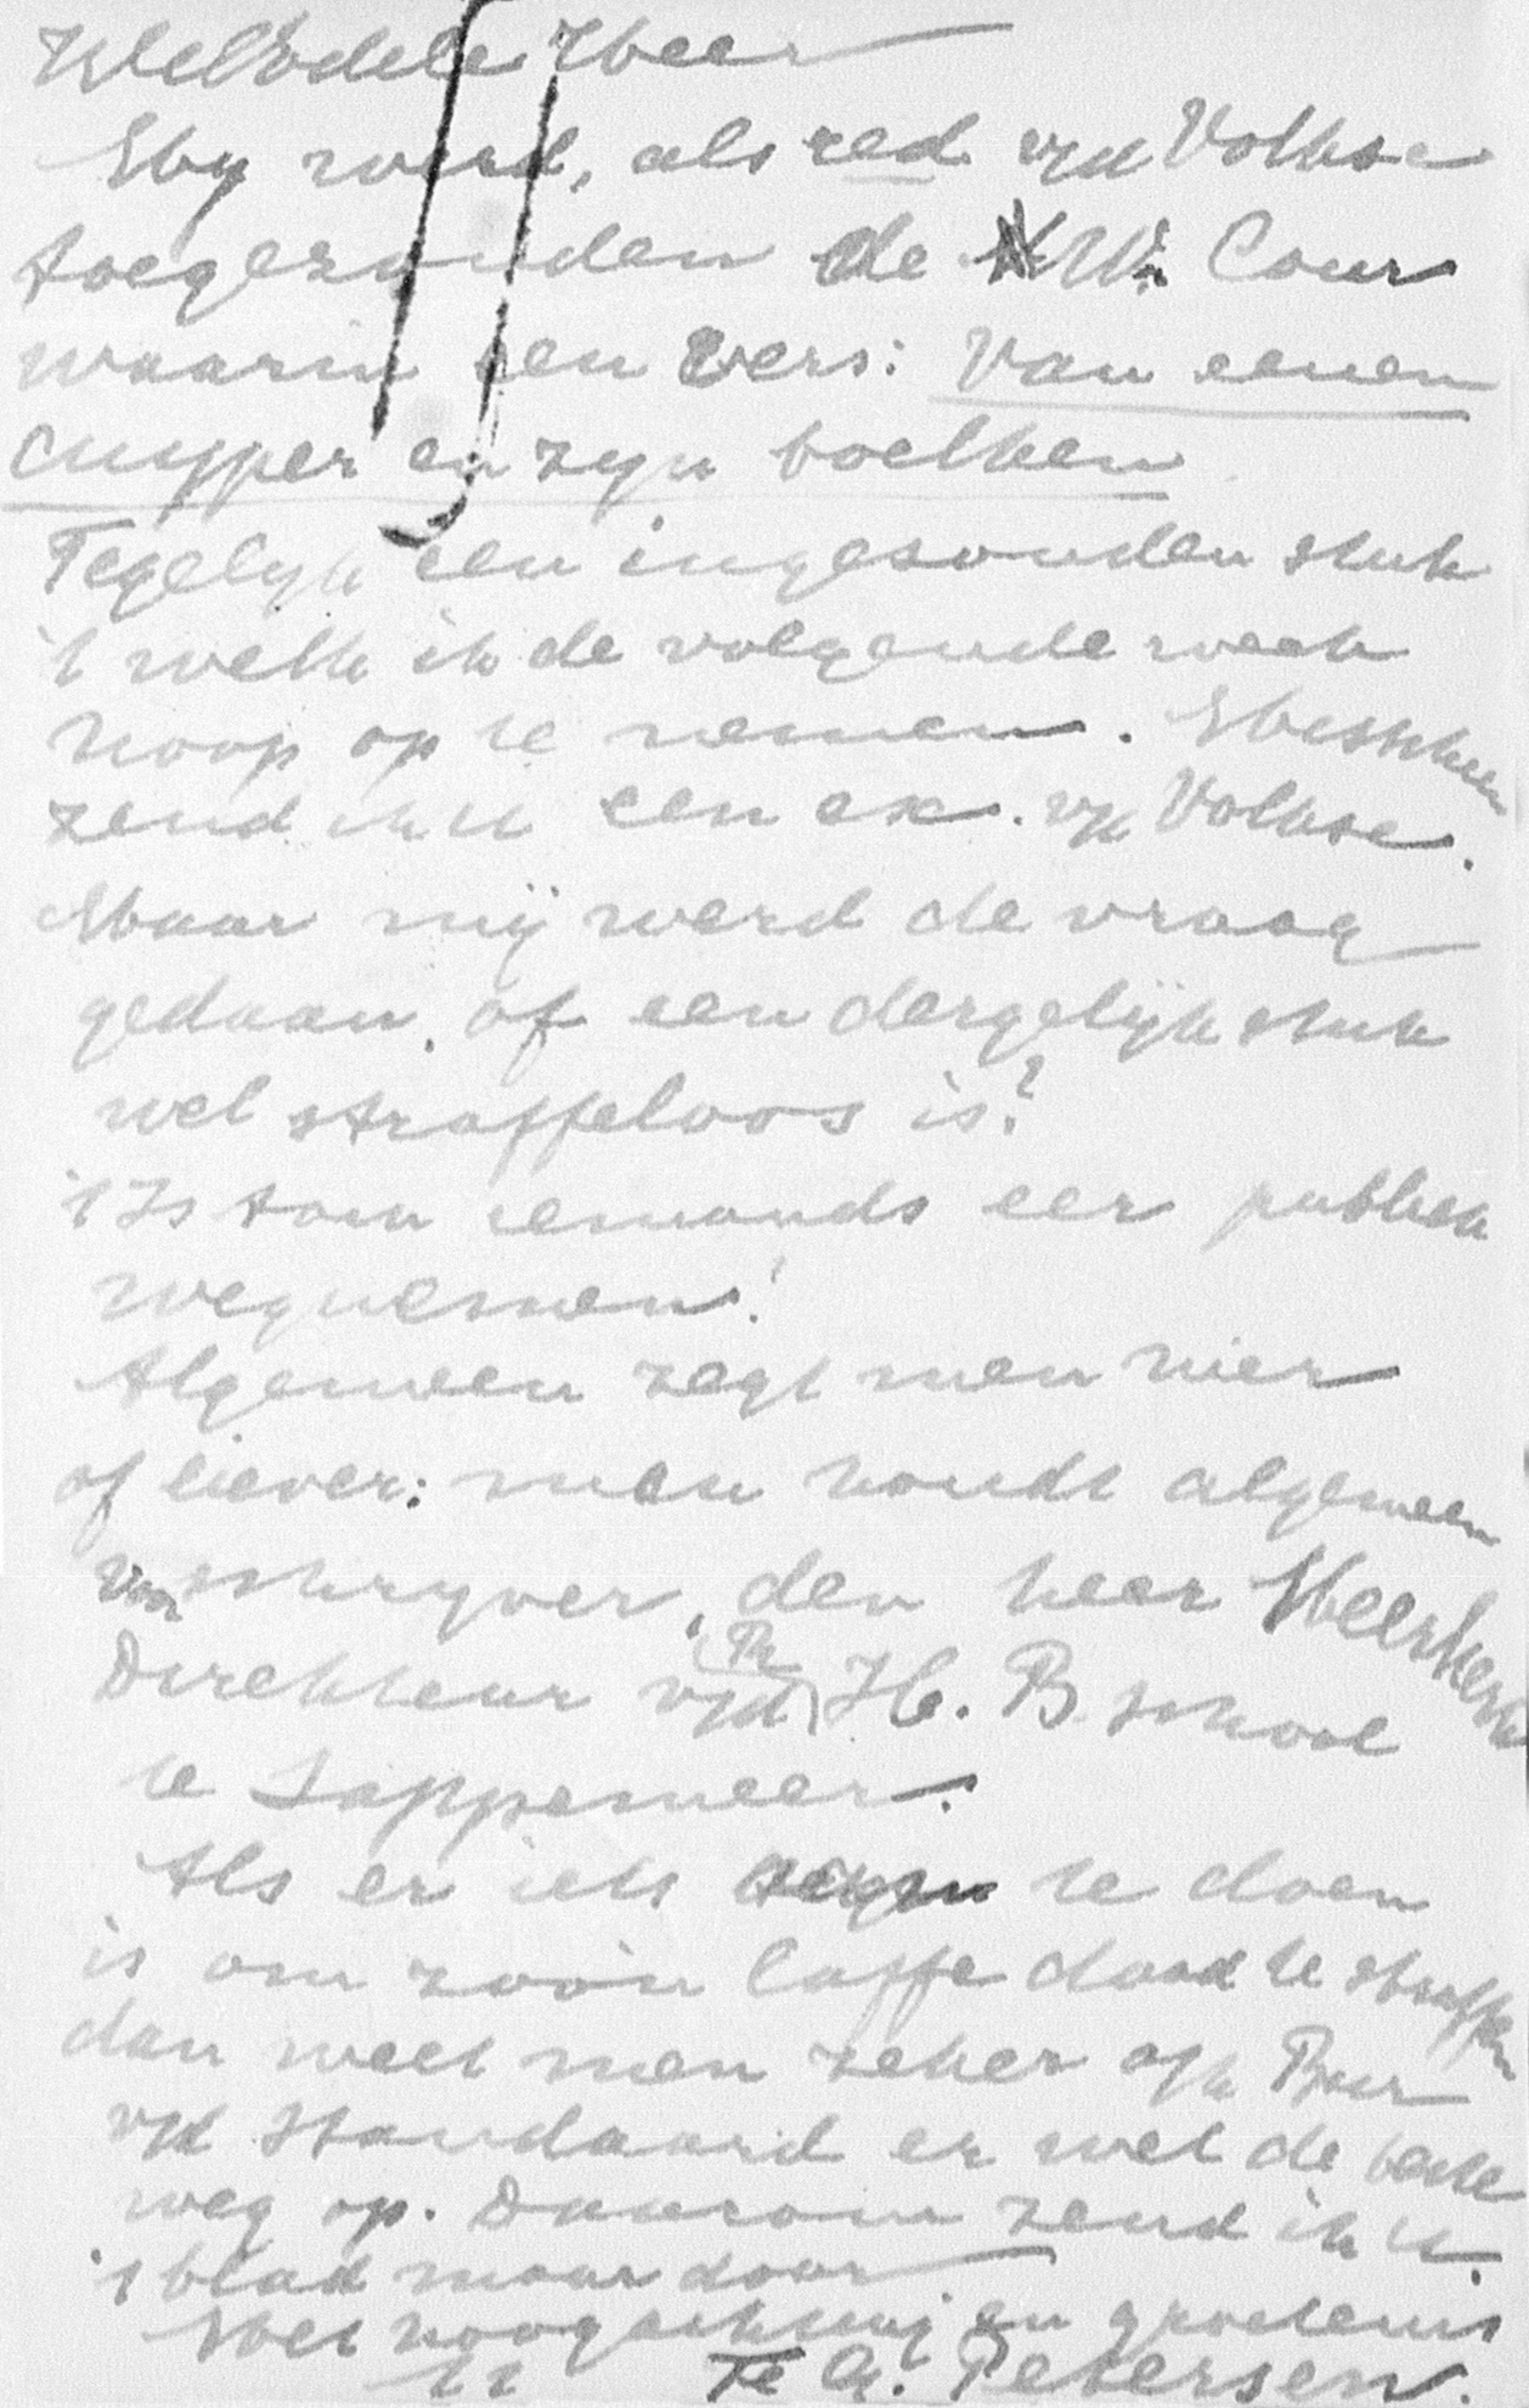 WelEdele Heer
My werd, als red v/h Volksc
toegezonden de W. Cour
waarin een vers: Van eenen
cuyper en zyn boelken
Tegelyk een ingesonden stuk
't welk ik de volgende week
hoop op te nemen. Misschien
zend ik u een ex. v/h Volksc.
Maar mij werd de vraag
gedaan, of een dergelijk stuk
wel straffeloos is?
't Is toch iemands eer publiek
wegnemen!
Algemeen zegt men hier
of liever: men houdt algemeen
voor schryver, den heer
Direkteur v/d H. B. school
te Sappemeer.
Als er iets te doen
is om zoo'n laffe daad te straffen
dan weet men zeker op h Bur
v/d Standaard er wel de beste
weg op. Daarom zend ik u
't blad maar door
Met hoogachting en groetens
Te A. Petersen.